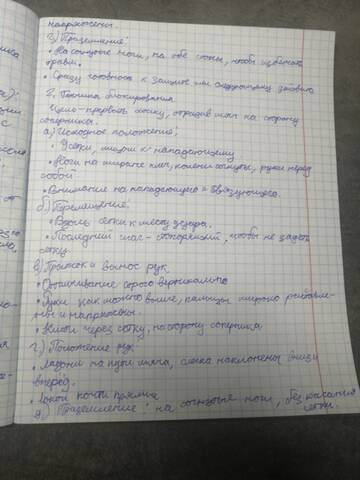 напряжены.
3) Приземление:
• На согнутые ноги, на обе стопы, чтобы избежать
травм.
• Сразу готовность к защите или следующему заданию
2. Техника блокирования.
Цель - прервать атаку, отразив мяч на сторону
соперника.
а) Исходное положение:
• У сетки, лицом к нападающему
• Ноги на ширине плеч, колени согнуты, руки перед
собой
• Внимание на нападающего и связующего.
б) Перемещение:
• Вдоль сетки к месту удара.
• Последний шаг - стопорящий, чтобы не задеть
сетку
в) Прыжок и вынос рук
• Отталкивание строго вертикально
• Руки как можно выше, пальцы широко расставле-
ны и напряжены.
• через сетку, на сторону соперника
г) Положение рук
• Ладони на пути мяча, слегка наклонены вниз и
вперёд.
• Локти почти прямые
д) Приземление: на согнутые ноги, без касания
сетки.